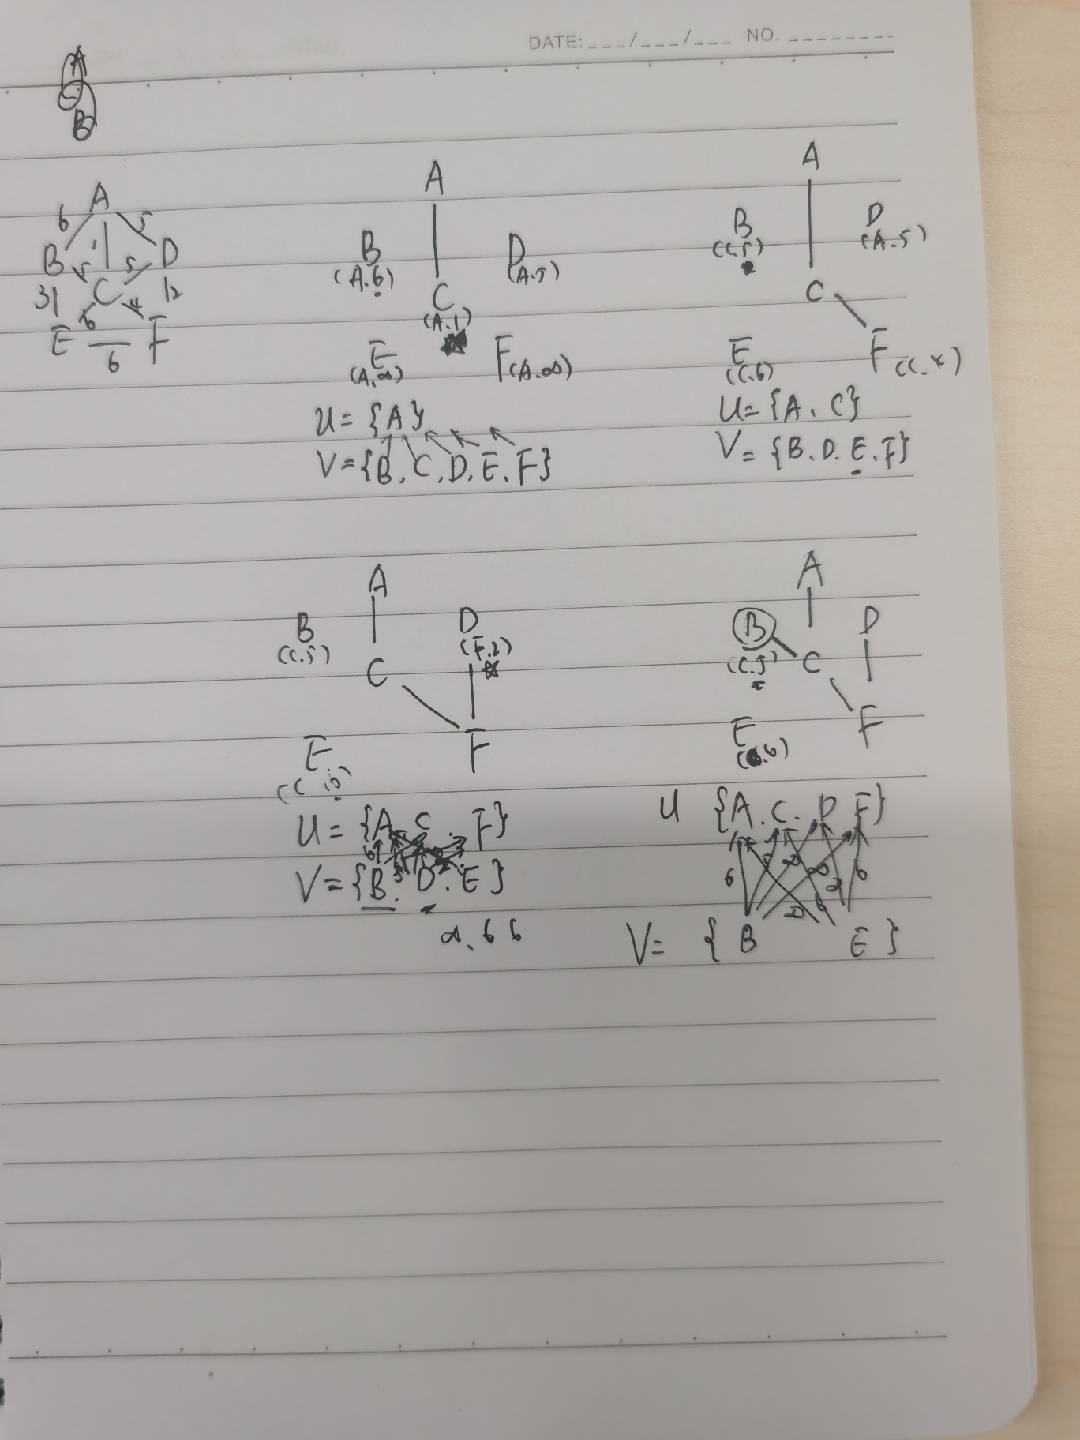 DATE:___/___/___ NO.________
A
B
A
6 5
B 1 D
5 5
3 C 2
6 4
E F
6
A
B
(A.6)
D
(A.5)
C
(A.1)
E
(A.∞)
F(A.∞)
U={A}
V={B,C,D,E,F}
A
B
(C.5)
D
(A.5)
C
E
(C.6)
F(C.4)
U={A,C}
V={B.D.E.F}
A
B
(C.5)
D
(F.2)
C
E
F
U={A C. F}
V={B. D. E}
6 6
A
B
(C.5)
D
C
E
F
U {A.C.D F}
6 6
V= {B E}